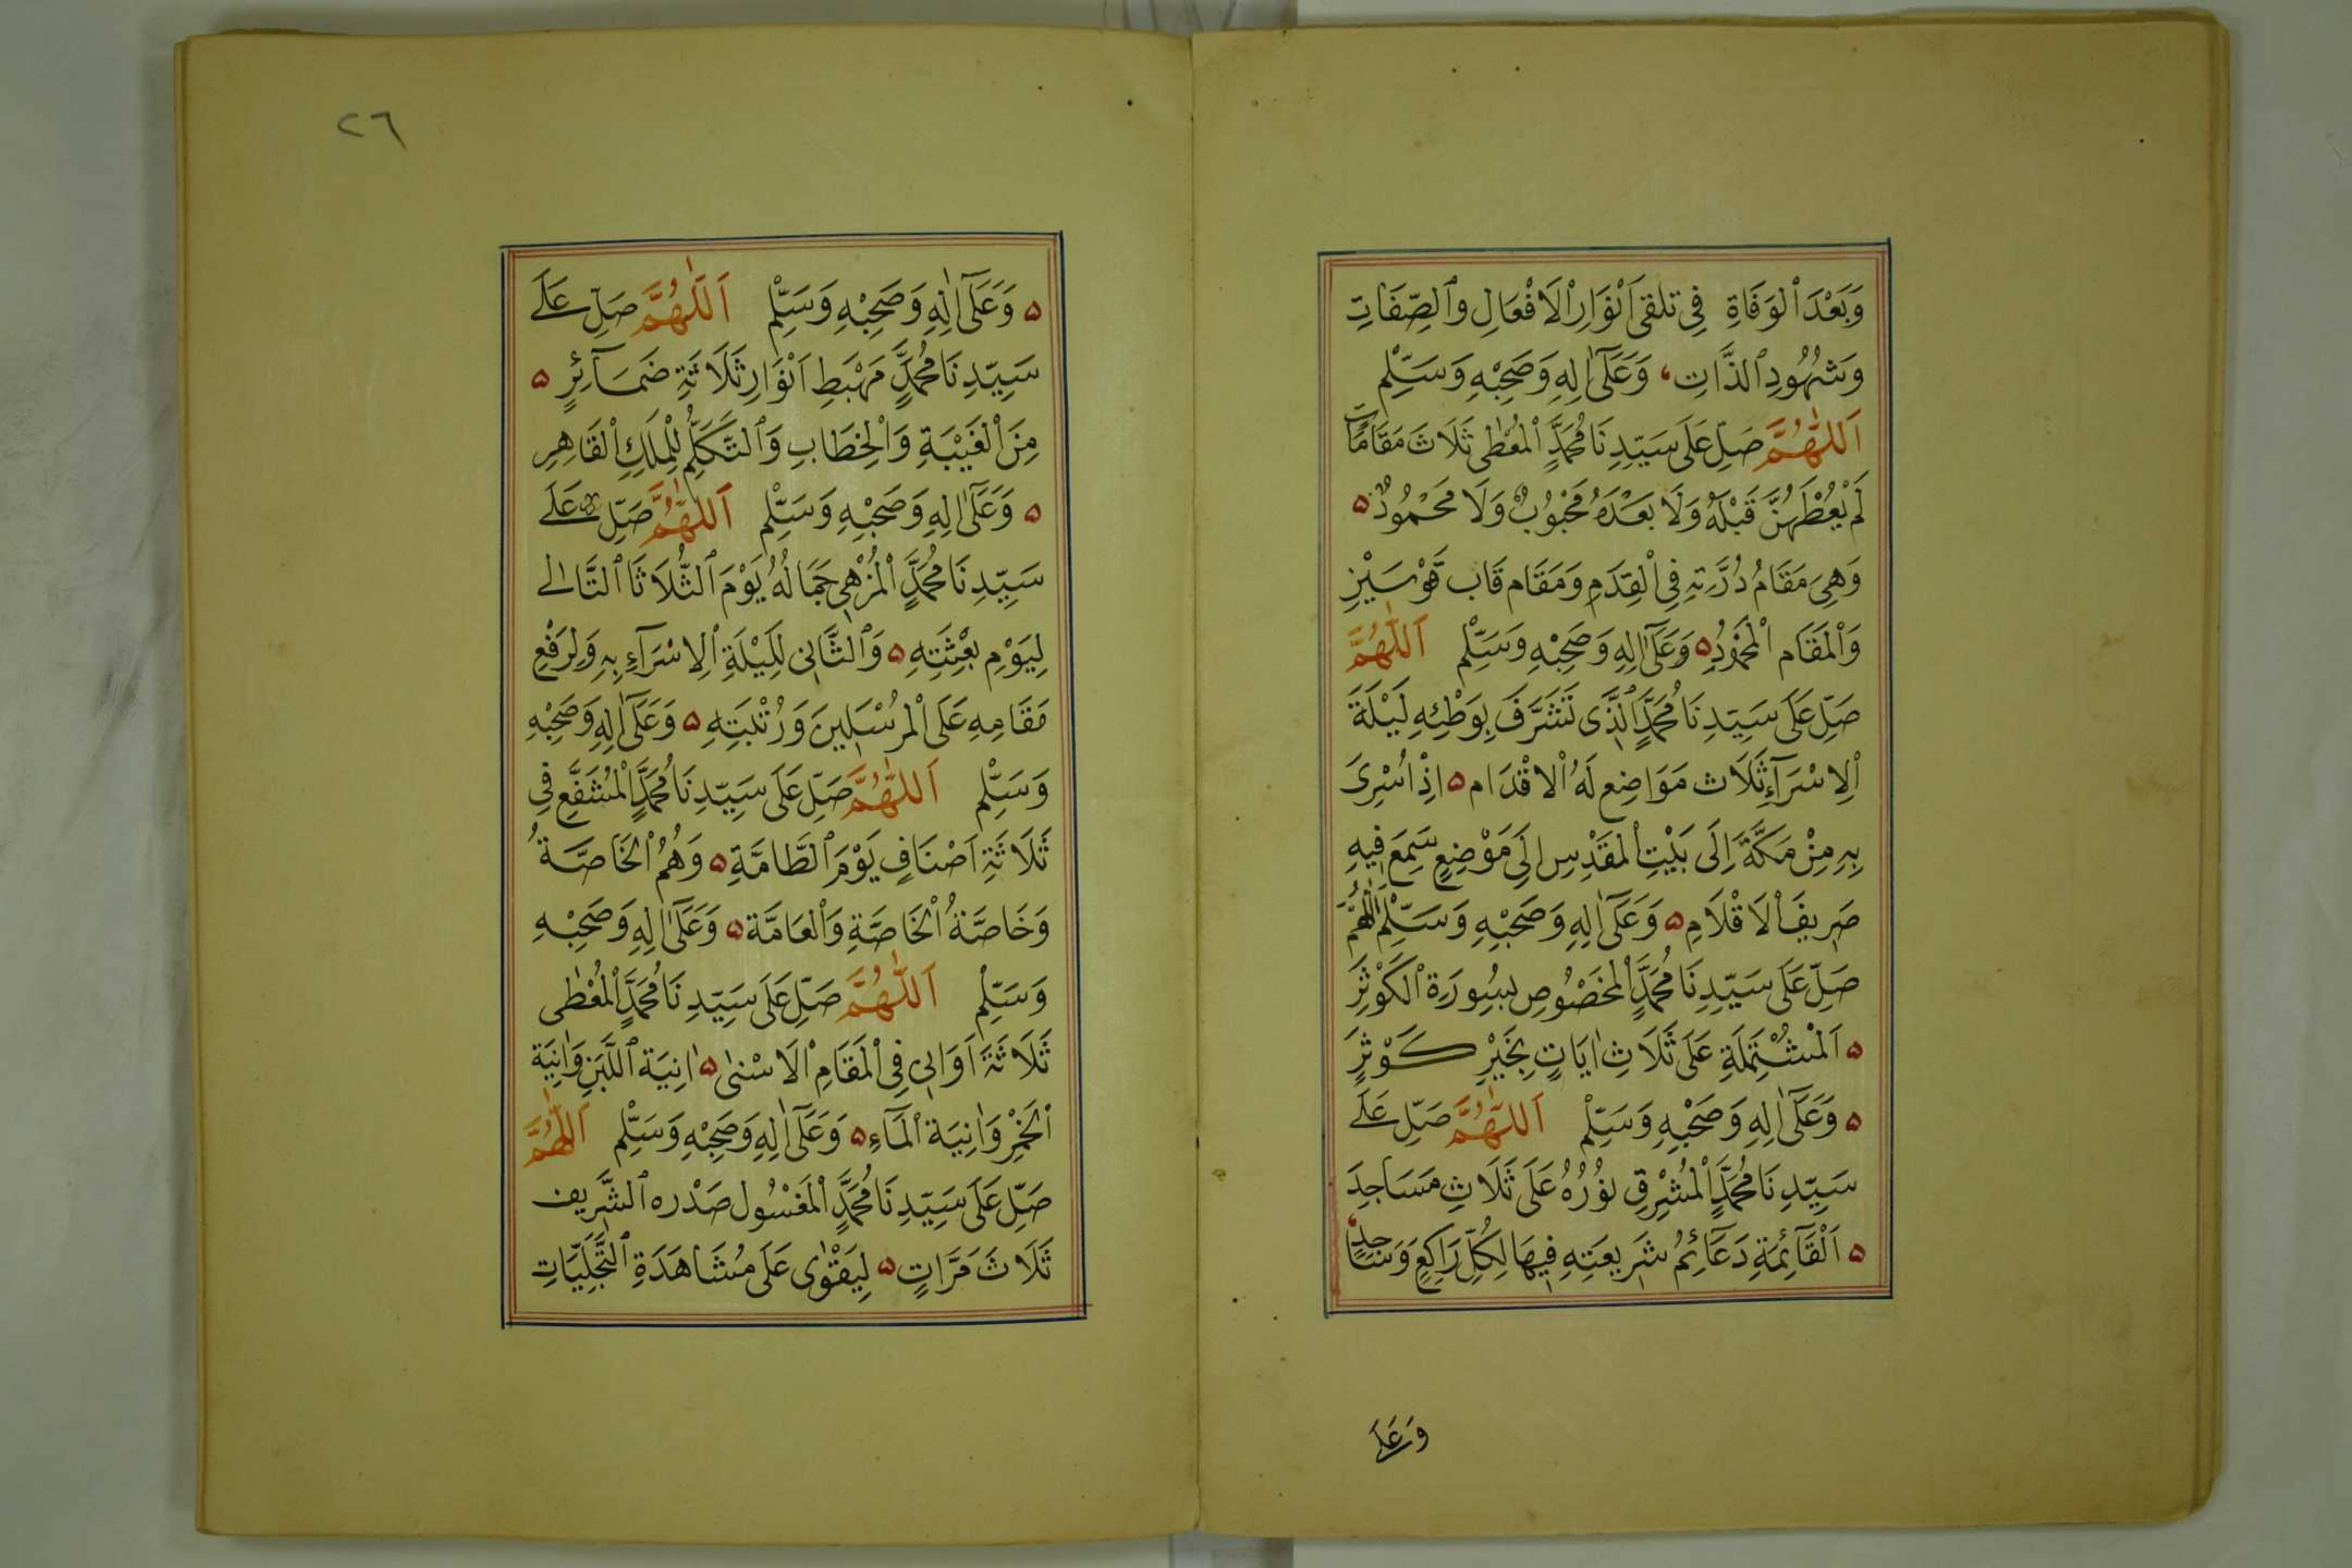 وَبَعْدَ ٱلْوَفَاةِ فِى تلقى اَنْوَارِ ٱلْاَفْعَالِ وٱلصِّفَاتِ
وَشُهُودِ ٱلذَّاتِ، وَعَلَىٓ اٰلِهِ وَصَحْبِهِ وَسَلِّمْ
اَللّٰهُمَّ صَلِّ عَلَى سَيِّدِنَا مُحَمَّدٍ ٱلْمُعْطٰى ثَلَاثَ مَقَامَاتٍ
لَمْ يُعْطَهُنَّ قَبْلَهُ وَلَا بَعْدَهُ مَحْبُوبٌ وَلَا مَحْمُودٌ ۵
وَهِىَ مَقَامُ دُرَّتِهِ فِى ٱلْقِدَمِ وَمَقَام قَاب قَوْسَيْنِ
وَٱلْمَقَام ٱلْمَحْمُودِ ۵ وَعَلَىٓ اٰلِهِ وَصَحْبِهِ وَسَلِّمْ اَللّٰهُمَّ
صَلِّ عَلَى سَيِّدِنَا مُحَمَّدٍ ٱلَّذِى تَشَرَّفَ بِوَطْئِهِ لَيْلَةَ
ٱلِاسْرَآءِ ثَلَاث مَوَاضِع لَهُ ٱلاقْدَام ۵ اِذْ اُسْرِىَ
بِهِ مِنْ مَكَّةَ اِلَى بَيْتِ ٱلْمَقْدِسِ اِلَى مَوْضِعٍ سَمِعَ فِيهِ
صَرِيفَ ٱلاَقْلَامِ ۵ وَعَلَىٓ اٰلِهِ وَصَحْبِهِ وَسَلِّمْ اَللّٰهُمَّ
صَلِّ عَلَى سَيِّدِنَا مُحَمَّدٍ ٱلْمَخْصُوصِ بِسُورَةِ ٱلْكَوْثَرِ
۵ اَلْمُشْتَمِلَةِ عَلَى ثَلَاثِ اٰيَاتٍ بِخَيْرِ كَوْثَرٍ
۵ وَعَلَىٓ اٰلِهِ وَصَحْبِهِ وَسَلِّمْ اَللّٰهُمَّ صَلِّ عَلَى
سَيِّدِنَا مُحَمَّدٍ ٱلْمُشْرِقِ نُورُهُ عَلَى ثَلَاثِ مَسَاجِدَ
۵ اَلْقَآئِمَةِ دَعَآئِمُ شَرِيعَتِهِ فِيهَا لِكُلِّ رَاكِعٍ وَسَاجِدٍ،
وَعَلَى
٢٦
۵ وَعَلَىٓ اٰلِهِ وَصَحْبِهِ وَسَلِّمْ اَللّٰهُمَّ صَلِّ عَلَى
سَيِّدِنَا مُحَمَّدٍ مَهْبَطِ اَنْوَارِ ثَلَاثَةِ ضَمَآئِرٍ ۵
مِنَ ٱلْغَيْبَةِ وَٱلْخِطَابِ وَٱلتَّكَلُّمِ لِلْمَلِكِ ٱلْقَاهِرِ
۵ وَعَلَىٓ اٰلِهِ وَصَحْبِهِ وَسَلِّمْ اَللّٰهُمَّ صَلِّ عَلَى
سَيِّدِنَا مُحَمَّدٍ ٱلْمُزْهِى جَمَالُهُ يَوْمَ ٱلثُّلَاثَا ٱلتَّالى
لِيَوْمِ بِعْثَتِهِ ۵ وَٱلثَّانِى لِلَيْلَةِ ٱلِاسْرَآءِ بِهِ وَلِرَفْعِ
مَقَامِهِ عَلَى ٱلْمُرْسَلِينَ وَرُتْبَتِهِ ۵ وَعَلَىٓ اٰلِهِ وَصَحْبِهِ
وَسَلِّمْ اَللّٰهُمَّ صَلِّ عَلَى سَيِّدِنَا مُحَمَّدٍ ٱلْمُشَفَّعِ فِى
ثَلَاثَةِ اَصْنَافٍ يَوْمَ ٱلطَّامَّةِ ۵ وَهُمُ ٱلْخَاصَّةُ
وَخَاصَّةُ ٱلْخَاصَّةِ وَٱلْعَامَّة ۵ وَعَلَىٓ اٰلِهِ وَصَحْبِهِ
وَسَلِّمْ اَللّٰهُمَّ صَلِّ عَلَى سَيِّدِنَا مُحَمَّدٍ ٱلْمُعْطٰى
ثَلَاثَةَ اَوَانِى فِى ٱلْمَقَامِ ٱلاَسْنٰى ۵ اٰنِيَة ٱللَّبَنِ وَاٰنِيَة
ٱلْخَمْرِ وَاٰنِيَة ٱلْمَآءِ ۵ وَعَلَىٓ اٰلِهِ وَصَحْبِهِ وَسَلِّمْ اَللّٰهُمَّ
صَلِّ عَلَى سَيِّدِنَا مُحَمَّدٍ ٱلْمَغْسُول صَدْره ٱلشَّرِيف
ثَلَاثَ مَرَّاتٍ ۵ لِيَقْوٰى عَلَى مُشَاهَدَةِ ٱلتَّجَلِّيَاتِ